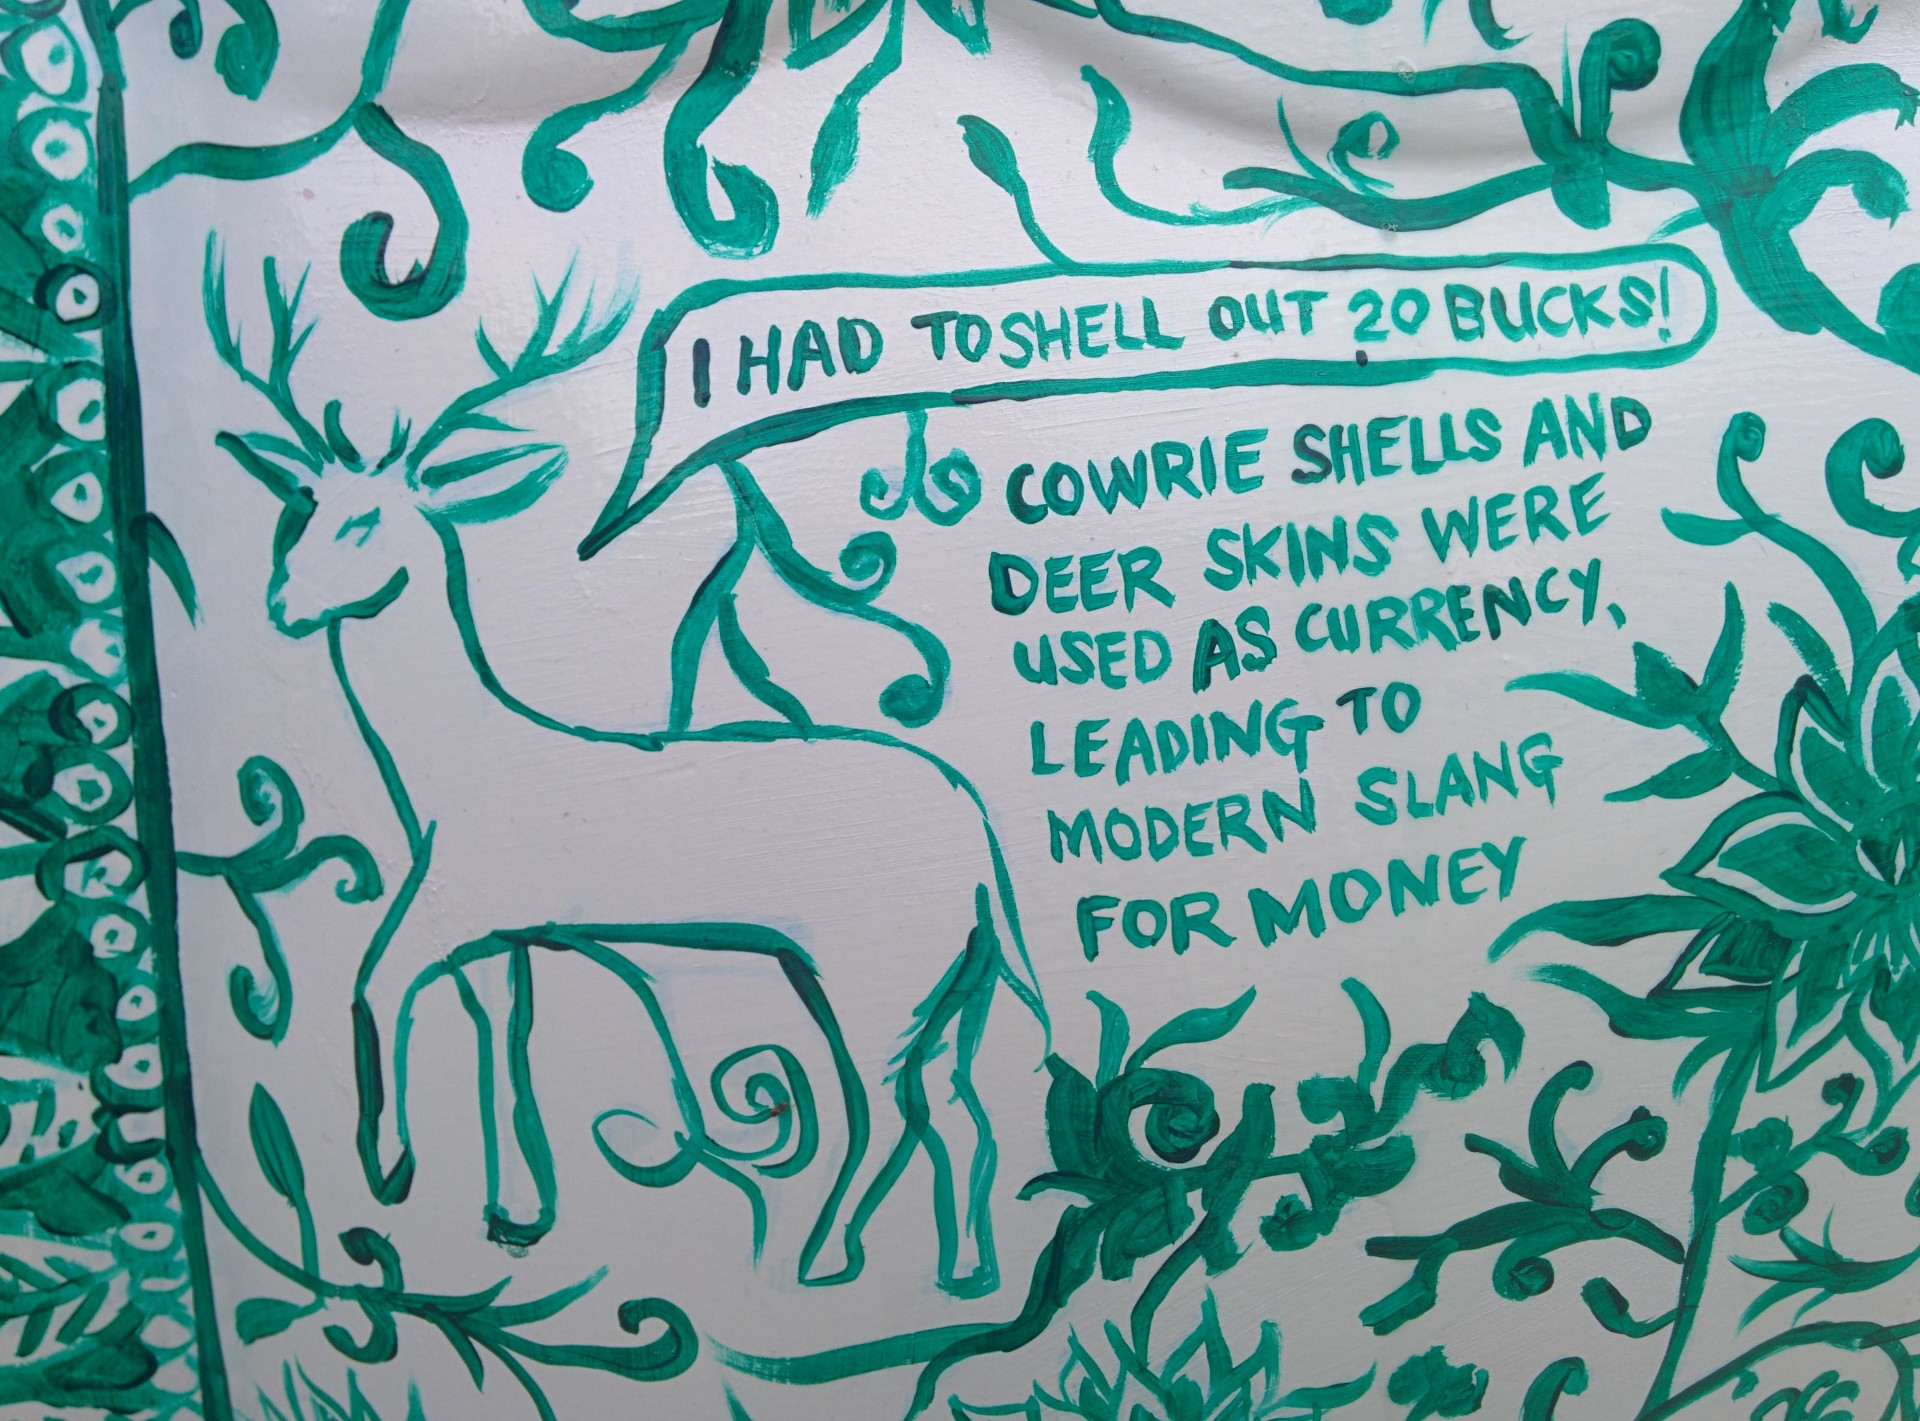 I HAD TO SHELL OUT 20 BUCKS!
COWRIE SHELLS AND
DEER SKINS WERE
USED AS CURRENCY,
LEADING TO
MODERN SLANG
FOR MONEY